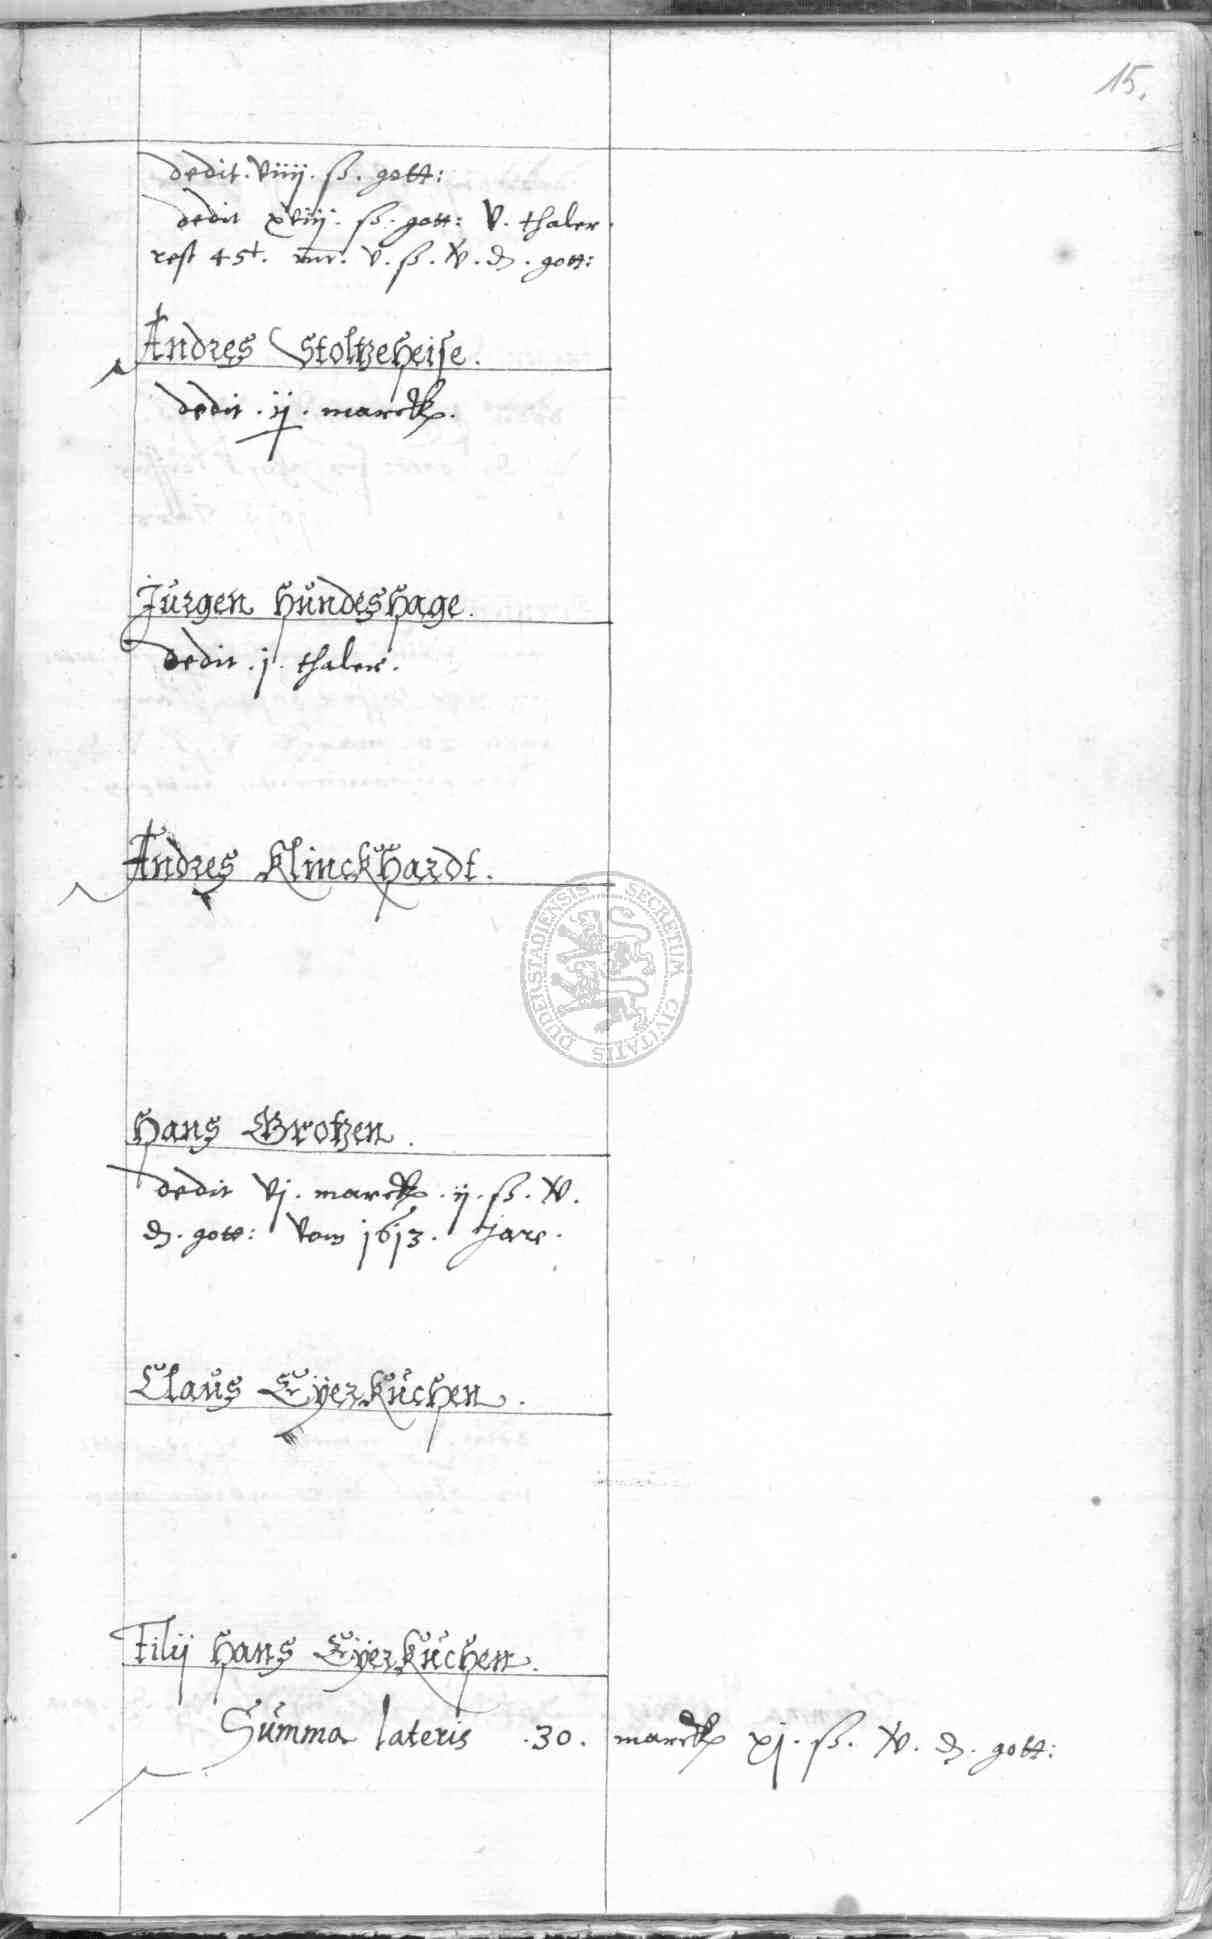 15.
dedit. viiij. ß. gott:
dedit xviij. ß. gott: V. thaler.
rest 45. mr. v. ß. gott:
Andres Stoltzeheise.
dedit. ij. marck.
Jürgen Hündeshage.
dedit. j. thaler.
Andres Klinckhardt.
DUDERSTADIENSIS SECRETUM CIVITATIS
Hans Grotzen.
dedit vj. marck. ij. ß.
d. gott: vom 1613. jare.
Claüs Eÿerküchen.
Filij Hans Eÿerküchen.
Summa lateris . 30. marck xj. ß. d. gott: